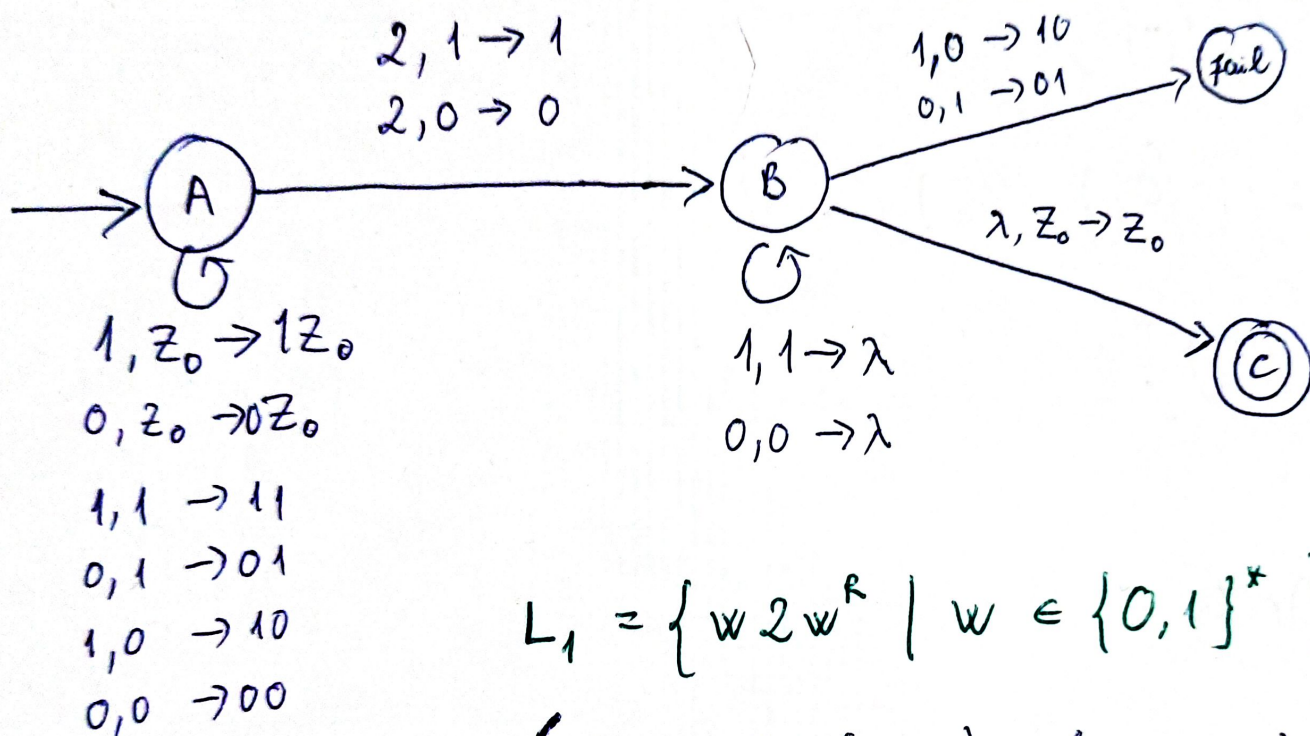 2, 1 → 1
2, 0 → 0
1,0 → 10
0,1 → 01
fail
A
B
λ, Z₀ → Z₀
C
1, Z₀ → 1Z₀
0, Z₀ → 0Z₀
1,1 → 11
0,1 → 01
1,0 → 10
0,0 → 00
1,1 → λ
0,0 → λ
L₁ = { w2wᴿ | w ∈ {0,1}*